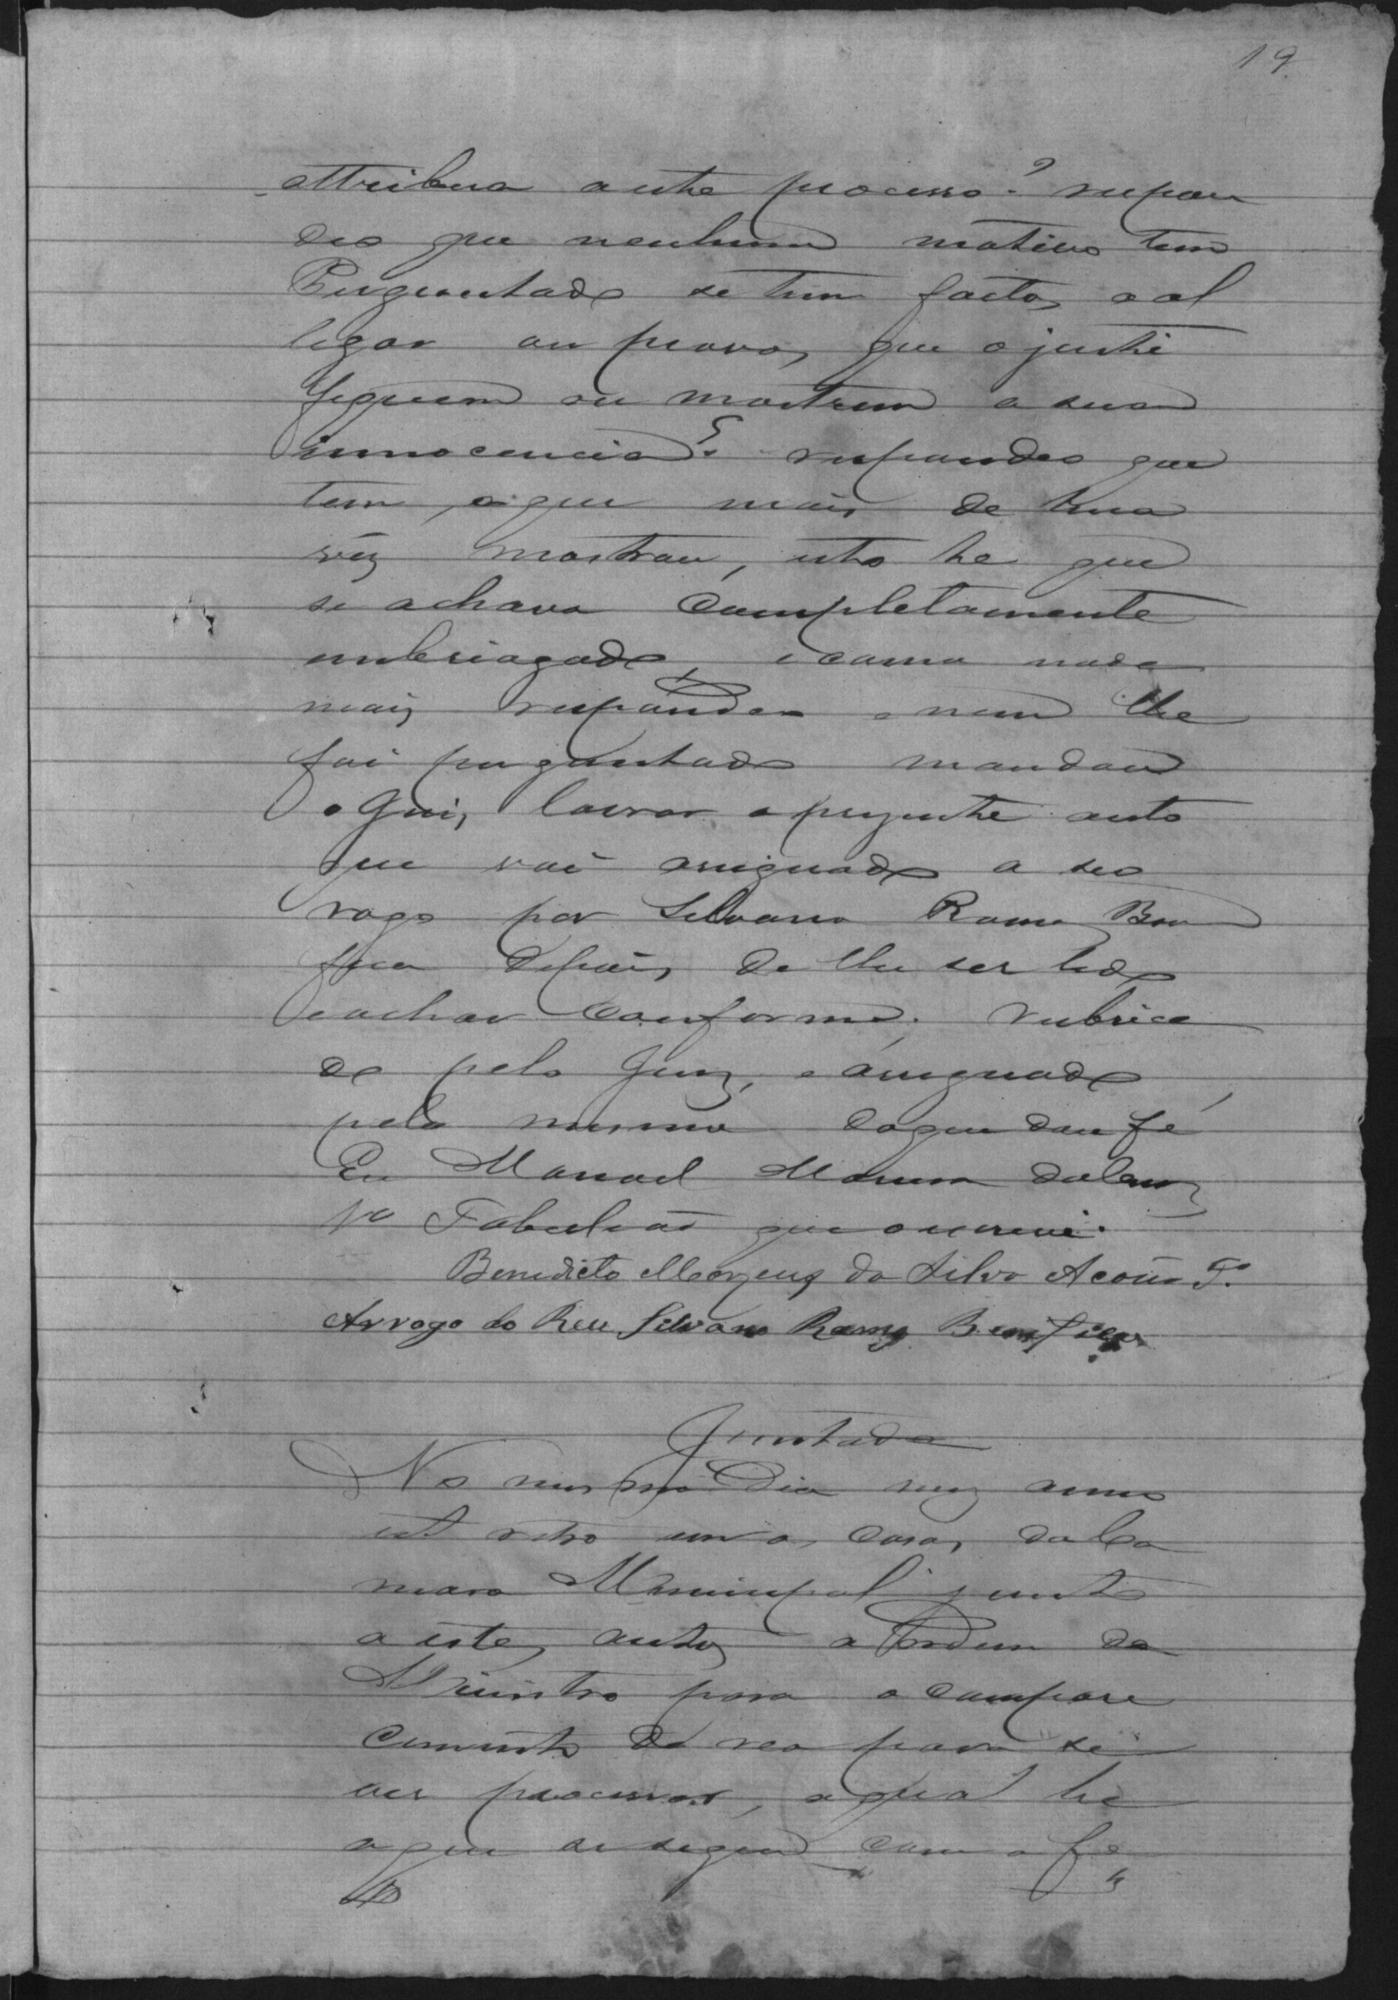 19
attribua a este processo? respon
deo que nenhum motivo tem
Perguntado se tem factos a al
legar ou provas que o justi
fiquem ou mostrem a sua
innocencia? respondeo que
tem, o que mais de huma
vez mostrou, isto he que
se achava completamente
embriagado, e como nada
mais respondeo e nem lhe
foi perguntado mandou
o Juis lavrar o prezente auto
que vai assignado a seo
rogo por Silvano Ramos Bon
fica depois de lhe ser lido
e achar conforme; rubrica
do pelo Juiz, e assignado
pelo mesmo do que dou fé
Eu Manoel da
1º Tabelião que o escrevi.
Benedicto Marques da Silva Acauã Fº
Arrogo do Reu Silvano Ramos Bemfica
Juntada
No mesmo dia mez anno
ut retro em as casas da Ca
mara Municipal junto
a estes autos a Ordem do
Ministro para o compare
cimento do reo para se
ver processar, a qual he
a que se segue com a fé